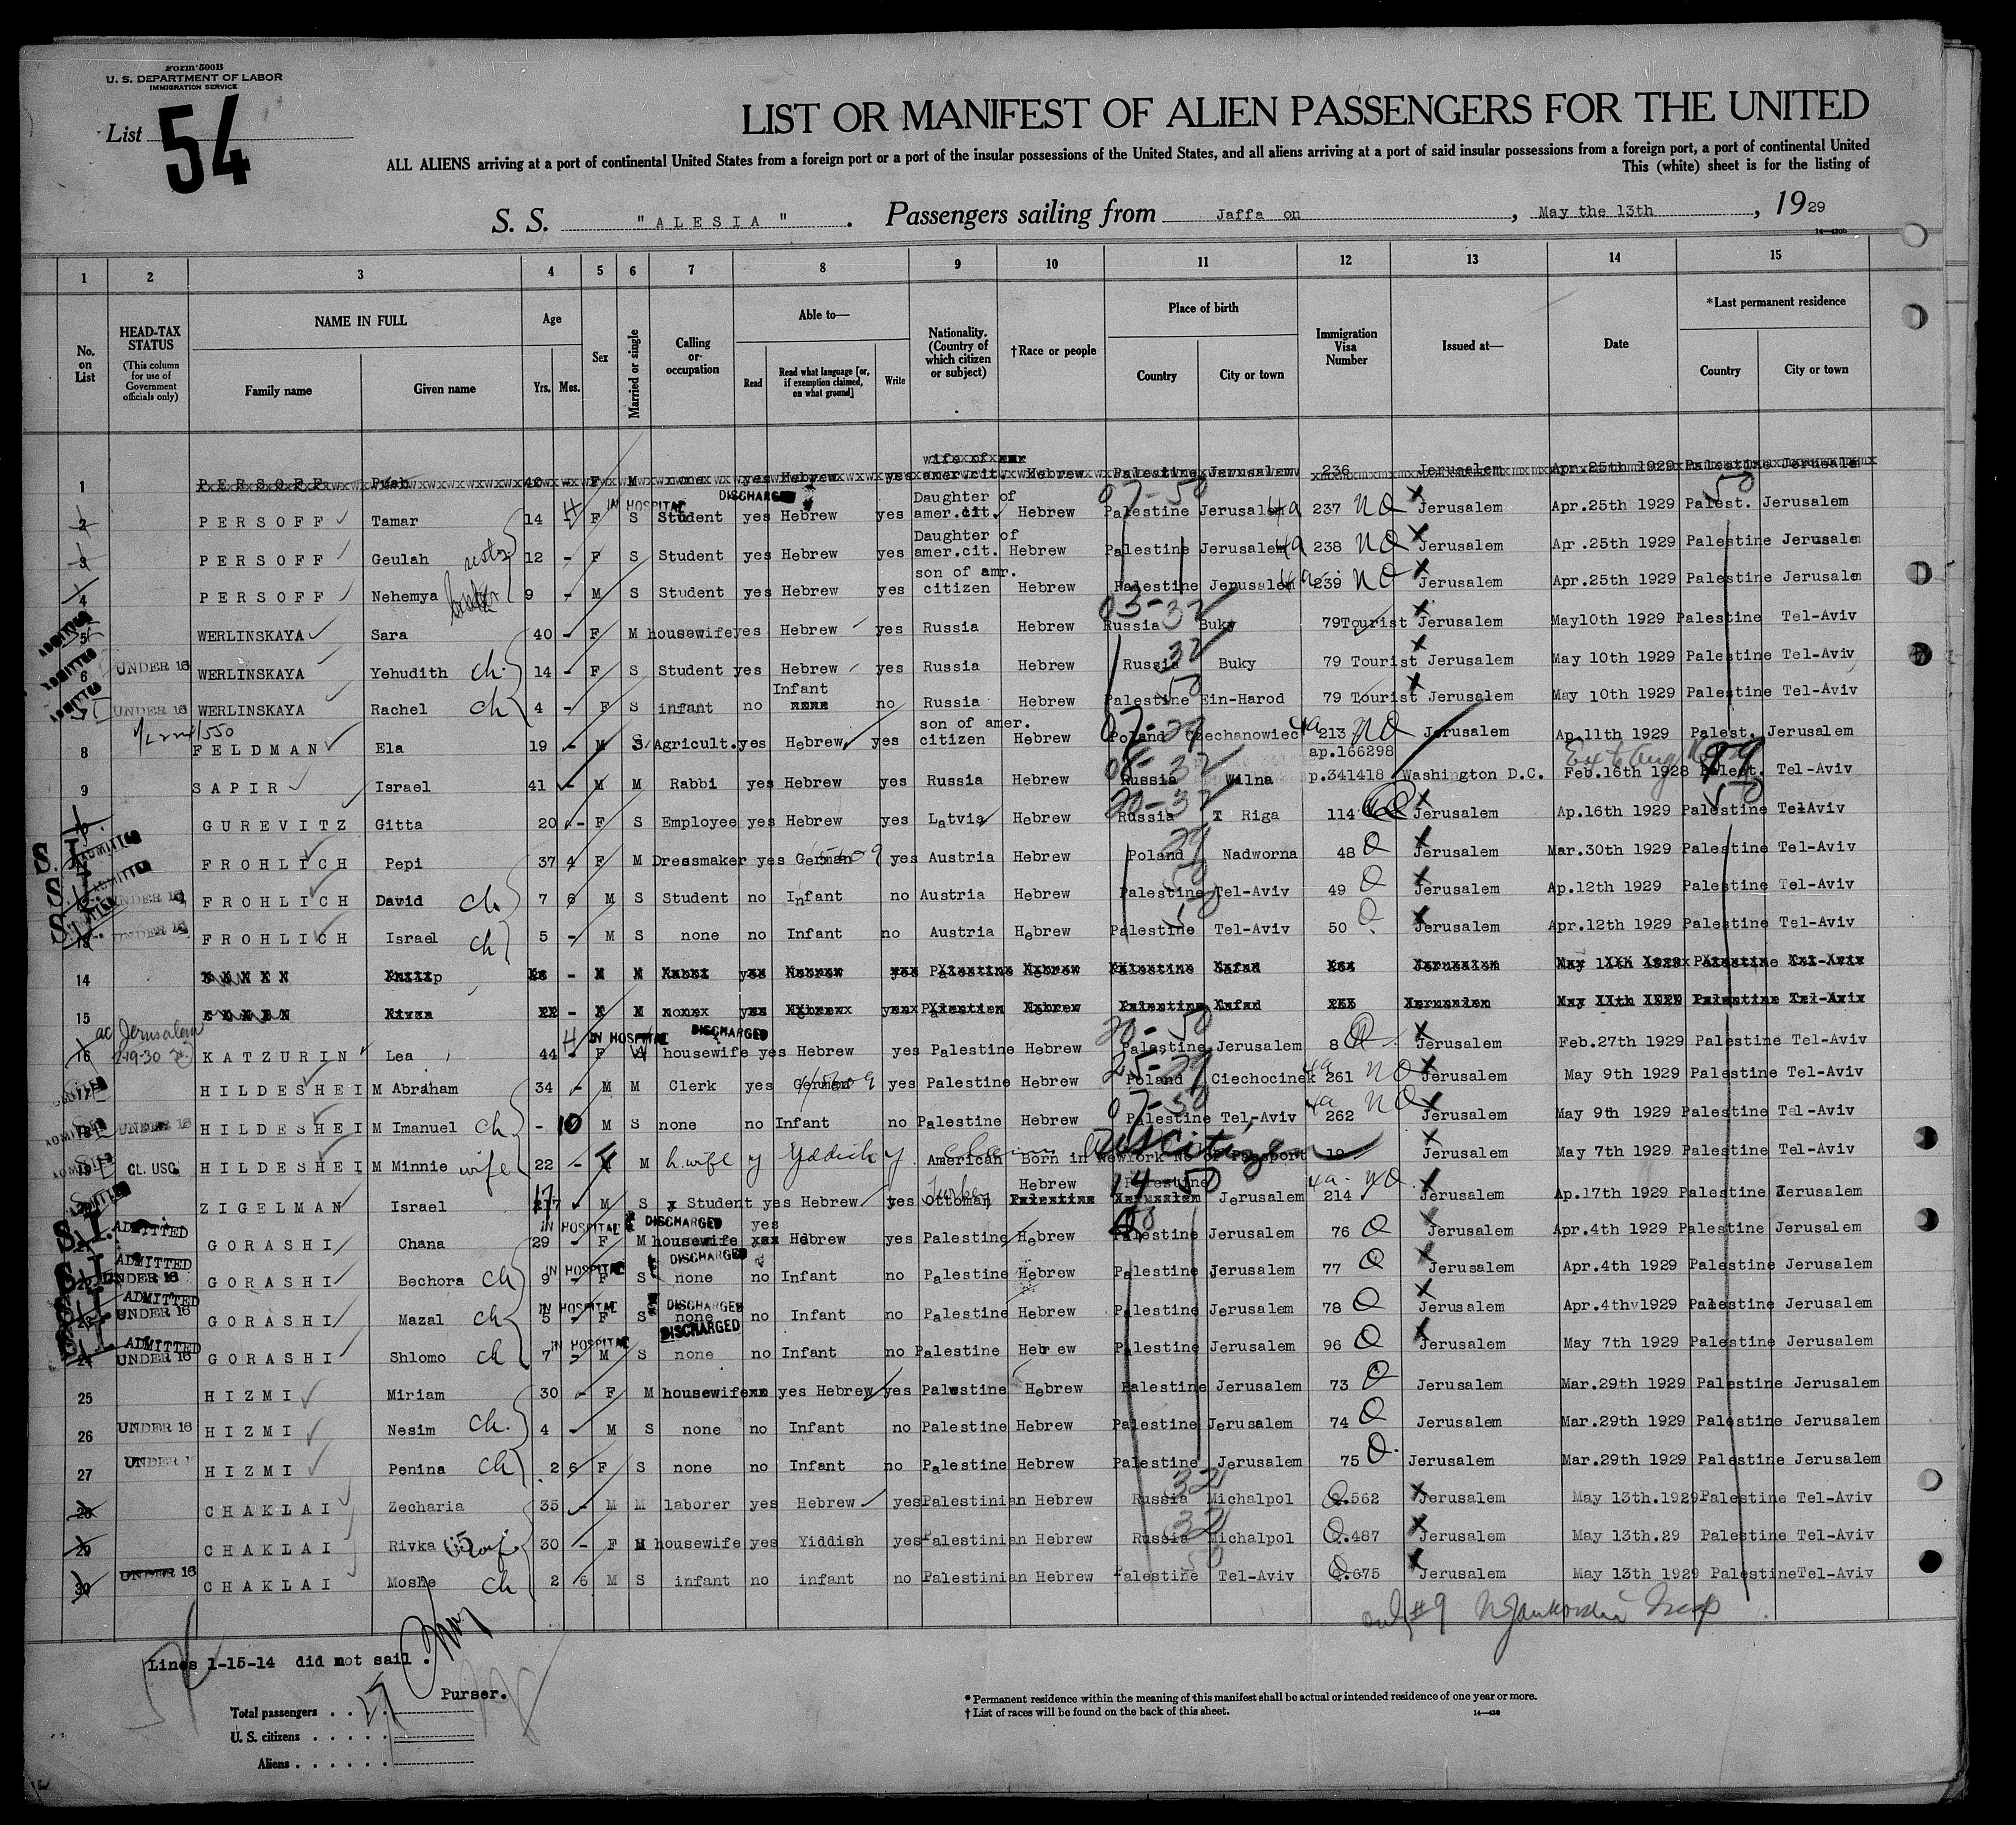 Form 500B
U. S. DEPARTMENT OF LABOR
IMMIGRATION SERVICE
List 54
LIST OR MANIFEST OF ALIEN PASSENGERS FOR THE UNITED
ALL ALIENS arriving at a port of continental United States from a foreign port or a port of the insular possessions of the United States, and all aliens arriving at a port of said insular possessions from a foreign port, a port of continental United
This (white) sheet is for the listing of
S. S. "ALESIA". Passengers sailing from Jaffa on, May the 13th, 1929
14—430b
1 2 3 4 5 6 7 8 9 10 11 12 13 14 15
No. on List
HEAD-TAX STATUS (This column for use of Government officials only)
NAME IN FULL Family name Given name
Age Yrs. Mos.
Sex
Married or single
Calling or occupation
Able to— Read Read what language [or, if exemption claimed, on what ground] Write
Nationality. (Country of which citizen or subject)
†Race or people
Place of birth Country City or town
Immigration Visa Number
Issued at—
Date
*Last permanent residence Country City or town
wife of
1 PERSOFF 40 - F M none yes Hebrew yes amer.cit. Hebrew Palestine Jerusalem 236 Jerusalem Apr.25th 1929 Palestine Jerusalem
IN HOSPITAL DISCHARGED Daughter of 07-50 50
2 PERSOFF Tamar 14 - F S Student yes Hebrew yes amer.cit. Hebrew Palestine Jerusalem 4a 237 NQ Jerusalem Apr.25th 1929 Palest. Jerusalem
Daughter of
3 PERSOFF Geulah 12 - F S Student yes Hebrew yes amer.cit. Hebrew Palestine Jerusalem 4a 238 NQ Jerusalem Apr.25th 1929 Palestine Jerusalem
son of amr.
4 PERSOFF Nehemya 9 - M S Student yes Hebrew yes citizen Hebrew Palestine Jerusalem 239 NQ Jerusalem Apr.25th 1929 Palestine Jerusalem
03-32
ADMITTED 5 WERLINSKAYA Sara 40 - F M housewife yes Hebrew yes Russia Hebrew Russia Buky 79 Tourist Jerusalem May10th 1929 Palestine Tel-Aviv
32
ADMITTED 6 UNDER 16 WERLINSKAYA Yehudith ch. 14 - F S Student yes Hebrew yes Russia Hebrew Russia Buky 79 Tourist Jerusalem May 10th 1929 Palestine Tel-Aviv
Infant 50
ADMITTED 7 UNDER 16 WERLINSKAYA Rachel ch 4 - F S infant no no Russia Hebrew Palestine Ein-Harod 79 Tourist Jerusalem May 10th 1929 Palestine Tel-Aviv
son of amer.
8 FELDMAN Ela 19 - M S Agricult. yes Hebrew yes citizen Hebrew Poland Czechanowiec 4a 213 NQ Jerusalem Ap.11th 1929 Palest. Jerusalem
ap.166298
9 SAPIR Israel 41 - M M Rabbi yes Hebrew yes Russia Hebrew Russia Wilna p.341418 Washington D.C. Feb.16th 1928 Palest. Tel-Aviv
20-32
GUREVITZ Gitta 20 - F S Employee yes Hebrew yes Latvia Hebrew Russia Riga 114 Jerusalem Ap.16th 1929 Palestine TelAviv
S.I. ADMITTED FROHLICH Pepi 37 4 F M Dressmaker yes German yes Austria Hebrew Poland Nadworna 48 Q Jerusalem Mar.30th 1929 Palestine Tel-Aviv
S.I. ADMITTED UNDER 16 FROHLICH David ch 7 6 M S Student no Infant no Austria Hebrew Palestine Tel-Aviv 49 Q Jerusalem Ap.12th 1929 Palestine Tel-Aviv
S.I. ADMITTED 13 UNDER 16 FROHLICH Israel ch 5 - M S none no Infant no Austria Hebrew Palestine Tel-Aviv 50 Q Jerusalem Apr.12th 1929 Palestine Tel-Aviv
14 - M M Rabbi yes Hebrew yes Palestine Hebrew Palestine Safad 264 Jerusalem May 11th 1929 Palestine Tel-Aviv
15 Rivka 22 - F M none yes Hebrew yes Palestine Hebrew Palestine Safad 265 Jerusalem May 11th 1929 Palestine Tel-Aviv
Jerusalem IN HOSPITAL DISCHARGED 20-50
16 KATZURIN Lea 44 - F housewife yes Hebrew yes Palestine Hebrew Palestine Jerusalem 8 Q Jerusalem Feb.27th 1929 Palestine Tel-Aviv
25-29
17 HILDESHEIM Abraham 34 - M M Clerk yes German yes Palestine Hebrew Poland Ciechocinek 4a 261 NQ Jerusalem May 9th 1929 Palestine Tel-Aviv
07-50
ADMITTED 18 UNDER 16 HILDESHEIM Imanuel ch - 10 M S none no Infant no Palestine Hebrew Palestine Tel-Aviv 4a 262 NQ Jerusalem May 9th 1929 Palestine Tel-Aviv
US citizen
ADMITTED 19 CL. USC HILDESHEIM Minnie wife 22 - F M h.wife y Yiddish y American Born in NewYork No of Passport 19 Jerusalem May 7th 1929 Palestine Tel-Aviv
Turkey Hebrew Palestine 14 50
ADMITTED ZIGELMAN Israel 17 M S Student yes Hebrew yes Ottoman Jerusalem 4a NQ 214 Jerusalem Ap.17th 1929 Palestine Jerusalem
IN HOSPITAL DISCHARGED yes
S.I. ADMITTED 21 GORASHI Chana 29 - F M housewife Hebrew yes Palestine Hebrew Palestine Jerusalem 76 Q Jerusalem Apr.4th 1929 Palestine Jerusalem
IN HOSPITAL DISCHARGED
S.I. ADMITTED 22 UNDER 16 GORASHI Bechora ch 9 - F S none no Infant no Palestine Hebrew Palestine Jerusalem 77 Q Jerusalem Apr.4th 1929 Palestine Jerusalem
IN HOSPITAL DISCHARGED
S.I. ADMITTED 23 UNDER 16 GORASHI Mazal ch 5 - F S none no Infant no Palestine Hebrew Palestine Jerusalem 78 Q Jerusalem Apr.4thv1929 Palestine Jerusalem
IN HOSPITAL DISCHARGED
S.I. ADMITTED 24 UNDER 16 GORASHI Shlomo ch 7 - M S none no Infant no Palestine Hebrew Palestine Jerusalem 96 Q Jerusalem May 7th 1929 Palestine Jerusalem
25 HIZMI Miriam 30 - F M housewife yes Hebrew yes Palestine Hebrew Palestine Jerusalem 73 Q Jerusalem Mar.29th 1929 Palestine Jerusalem
26 UNDER 16 HIZMI Nesim ch. 4 - M S none no Infant no Palestine Hebrew Palestine Jerusalem 74 Q Jerusalem Mar.29th 1929 Palestine Jerusalem
27 UNDER HIZMI Penina ch 2 6 F S none no Infant no Palestine Hebrew Palestine Jerusalem 75 Q. Jerusalem Mar.29th 1929 Palestine Jerusalem
32
28 CHAKLAI Zecharia 35 - M M laborer yes Hebrew yes Palestinian Hebrew Russia Michalpol Q.562 Jerusalem May 13th.1929 Palestine Tel-Aviv
32
29 CHAKLAI Rivka wife 30 - F M housewife yes Yiddish yes Palestinian Hebrew Russia Michalpol Q.487 Jerusalem May 13th.29 Palestine Tel-Aviv
50
30 UNDER 16 CHAKLAI Moshe ch 2 6 M S infant no infant no Palestinian Hebrew Palestine Tel-Aviv Q.675 Jerusalem May 13th 1929 Palestine Tel-Aviv
only #9
Lines 1-15-14 did not sail.
Purser.
Total passengers
U. S. citizens
Aliens
* Permanent residence within the meaning of this manifest shall be actual or intended residence of one year or more.
† List of races will be found on the back of this sheet.
14—430